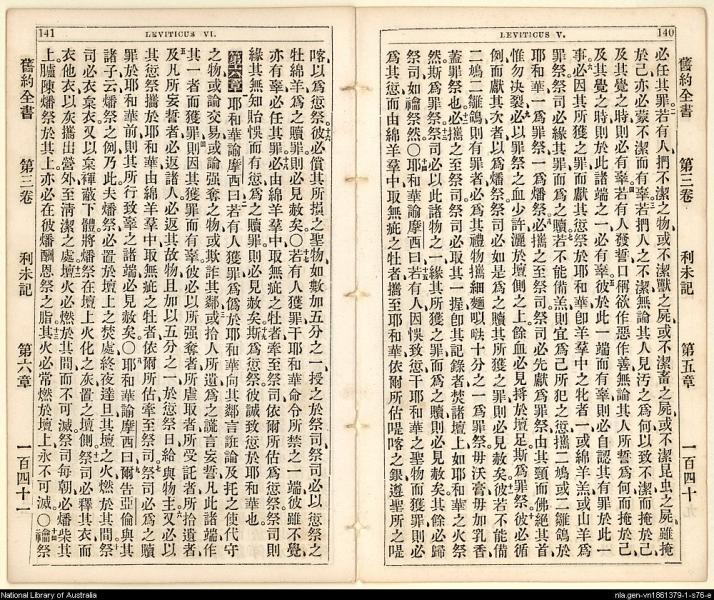 LEVITICUS V.
140
舊約全書
第三卷
利未記
第五章
一百四十
必任其罪若有人捫不潔之物或不潔獸之屍或不潔畜之屍或不潔昆虫之屍雖掩
於己亦必蒙不潔而有辜若捫人之不潔無論其人見汚之爲何以致不潔而掩於己
及其覺之時則必有辜若有人發誓口稱欲作惡作善無論其人所誓爲何而掩於己
及其覺之時則於此諸端之一必有辜彼於此一端而有辜則必自認其有罪於此一
事必因其所獲之罪而獻其愆祭於耶和華卽羊羣中之牝者一或綿羊羔或山羊爲
罪祭祭司必緣其罪而爲之贖若不能備羔則宜爲己所犯之愆攜二鳩或二雛鴿於
耶和華一爲罪祭一爲燔祭必攜之至祭司祭司必先獻爲罪祭由其頸而佛絕其首
惟勿决裂必以罪祭之血少許灑於壇側之上餘血必見捋於壇足斯爲罪祭彼必循
例而獻其次者以爲燔祭祭司必如是爲之贖其所獲之罪則必見赦矣彼若不能備
二鳩二雛鴿則有罪者必爲其禮物攜細麵以咉十分之一爲罪祭毋沃膏毋加乳香
蓋罪祭也必攜之至祭司祭司必取其一握卽其記錄者焚諸壇上如耶和華之火祭
然斯爲罪祭祭司必以此諸物之一緣其所獲之罪而爲之贖則必見赦矣其餘必歸
祭司如禴祭然〇耶和華諭摩西曰若有人因悞致愆干耶和華之聖物而獲罪則必
爲其愆而由綿羊羣中取無疵之牡者攜至耶和華依爾所估㖷喀之銀遵聖所之㖷
LEVITICUS VI.
141
舊約全書
第三卷
利未記
第六章
一百四十一
喀以爲愆祭彼必償其所損之聖物如數加五分之一授之於祭司祭司必以愆祭之
牡綿羊爲之贖罪則必見赦矣〇若有人獲罪干耶和華命令所禁之一端彼雖不覺
亦有辜必任其罪必由綿羊羣中取無疵之牡者牽至祭司依爾所估爲愆祭祭司則
緣其無知貽悞而有愆爲之贖罪則必見赦矣斯爲愆祭彼誠致愆於耶和華也
第六章耶和華諭摩西曰若有人獲罪爲僞於耶和華向其鄰言誑論及托之使代守
之物或論交易或論強奪之物或欺詐其鄰或拾人所遺爲之謊言妄誓凡此諸端作
其一者而獲罪則因其獲罪而有辜彼必以所强奪者所虐取者所受託者所拾遺者
及凡所妄誓者必返諸人必返其故物且加以五分之一於愆祭日給與物主又必以
其愆祭攜於耶和華由綿羊羣中取無疵之牡者依爾所估牽至祭司祭司必爲之贖
罪於耶和華前則其所行致辜之諸端必見赦矣〇耶和華諭摩西曰爾告亞倫與其
諸子云燔祭之例乃此夫燔祭必置於壇上之焚處終夜達旦其壇之火燃於其間祭
司必衣枲衣又以枲褌蔽下體將燔祭在壇上火化之灰置之壇側祭司必釋其衣而
衣他衣以灰攜出營外至淸潔之處壇火必燃於其間而不可滅祭司每朝必燔柴其
上臚陳燔祭於其上亦必在彼燔酬恩祭之脂其火必常燃於壇上永不可滅〇論祭
National Library of Australia
nla.gen-vn1861379-1-s76-e